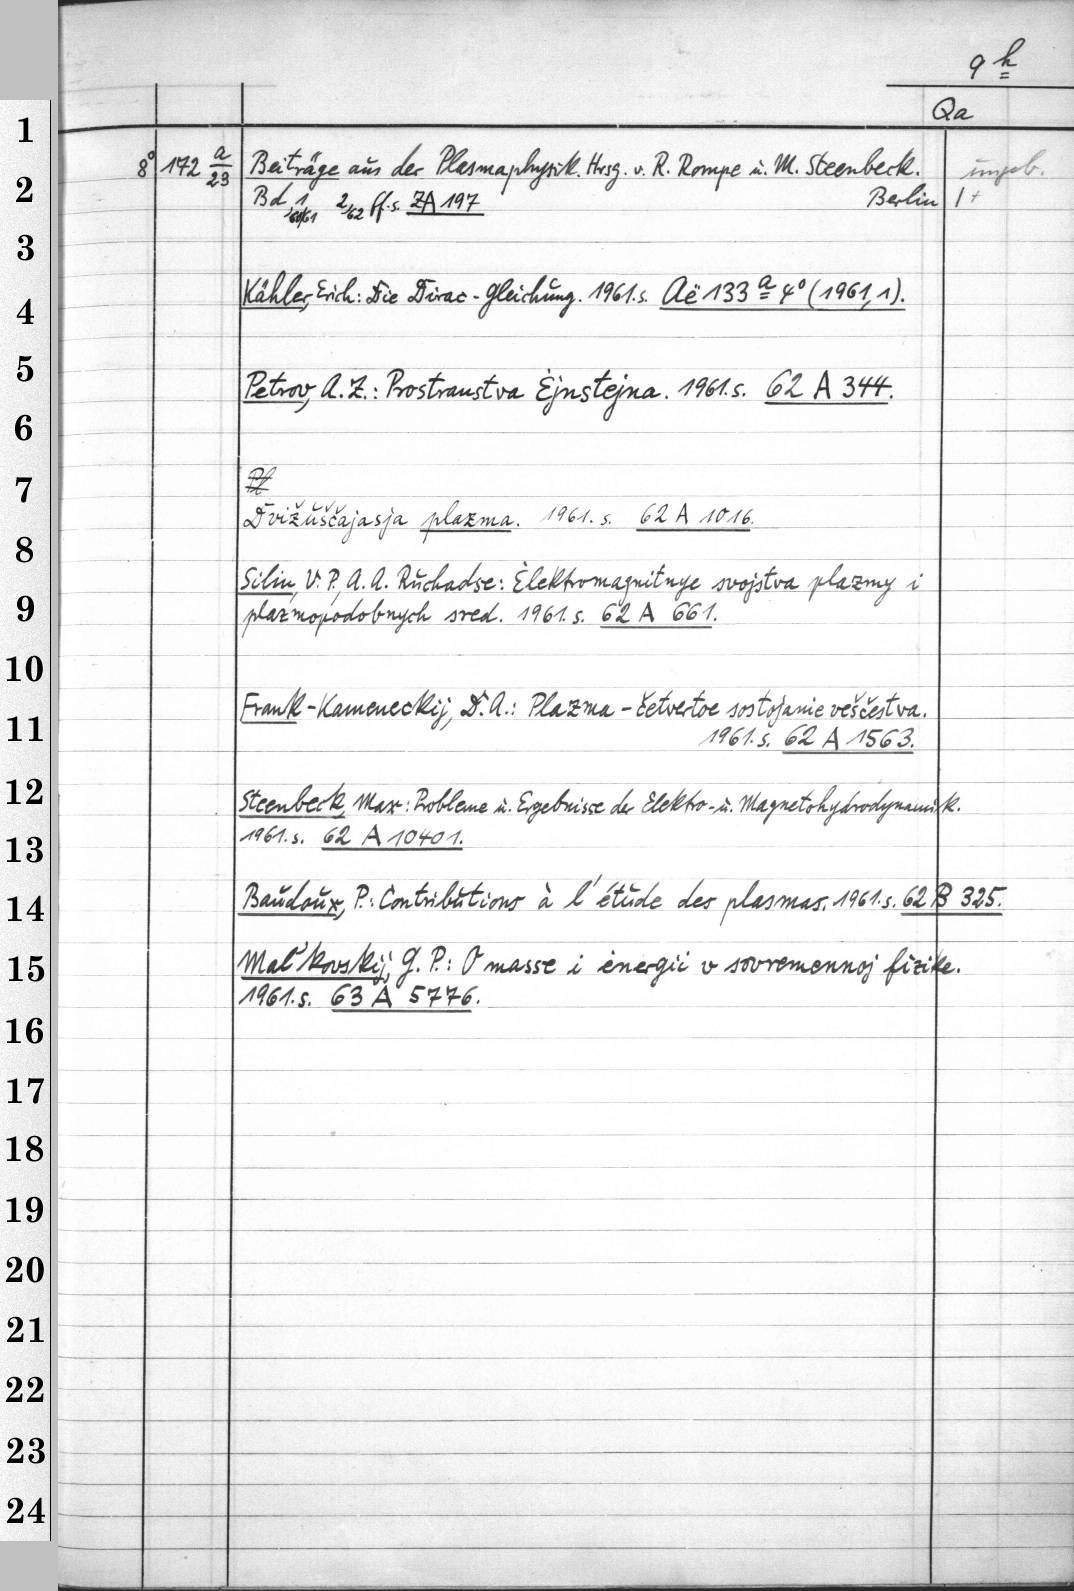 9 h
Qa
8° 172 a/23 Beiträge aus der Plasmaphysik. Hrsg. v. R. Rompe u. M. Steenbeck. ungeb.
Bd 1, 60/61 2/62 ff. s. ZA 197 Berlin 1+
Kähler, Erich: Die Dirac-Gleichung. 1961. s. Aë 133 a 4° (1961, 1).
Petrov, A. Z.: Prostranstva Ėjnstejna. 1961. s. 62 A 344.
Dvižuščajasja plazma. 1961. s. 62 A 1016.
Silin, V. P., A. A. Ruchadse: Ėlektromagnitnye svojstva plazmy i
plazmopodobnych sred. 1961. s. 62 A 661.
Frank-Kameneckij, D. A.: Plazma - četvertoe sostojanie veščestva.
1961. s. 62 A 1563.
Steenbeck, Max: Probleme u. Ergebnisse der Elektro- u. Magnetohydrodynamik.
1961. s. 62 A 10401.
Baudoux, P.: Contributions à l'étude des plasmas. 1961. s. 62 B 325.
Mal'kovskij, G. P.: O masse i ėnergii v sovremennoj fizike.
1961. s. 63 A 5776.
1
2
3
4
5
6
7
8
9
10
11
12
13
14
15
16
17
18
19
20
21
22
23
24